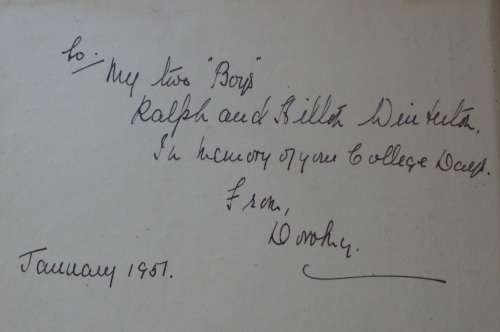 to:
My two "Boys"
Ralph and Hilton Winterton.
In memory of your College Days.
From,
Dorothy.
January 1951.